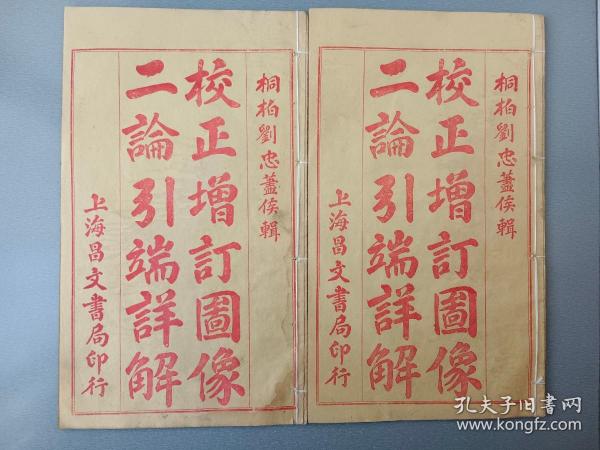 桐柏劉忠藎侯輯
校正增訂圖像
二論引端詳解
上海昌文書局印行
桐柏劉忠藎侯輯
校正增訂圖像
二論引端詳解
上海昌文書局印行
孔夫子旧书网
www.kongfz.com